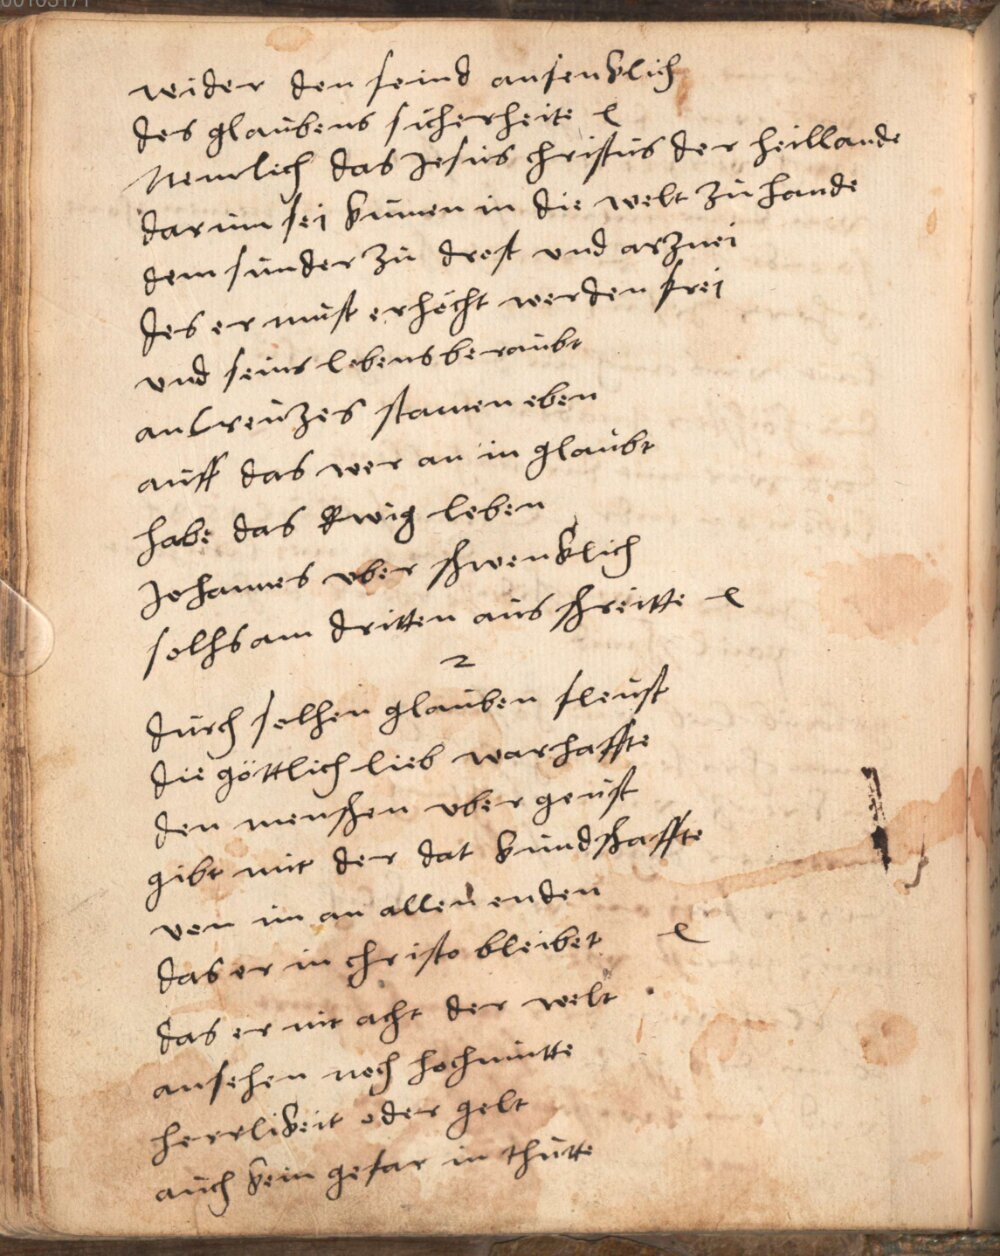 00103171
wider den feind anfenklich
des glaubens sicherheite
Nemlich das Jesus christus der heillande
darum sei kumen in die welt zu hande
dem sunder zu drost und arznei
des er must erhöcht werden frei
vnd seins lebens beraubt
an Creuzes stamen eben
auff das wer an in glaubt
habe das Ewig leben
Johannes vber schwenklich
solchs am dritten aus schreitte
2
durch solchen glauben fleust
die göttlich lieb warhaffte
den menschen vber geust
gibt mit der dat kundschaffte
von im an allen enden
das er in christo bleibet
das er nit acht der welt
ansehen noch hochmutte
herrlikeit oder gelt
auch kein gefar in thutte